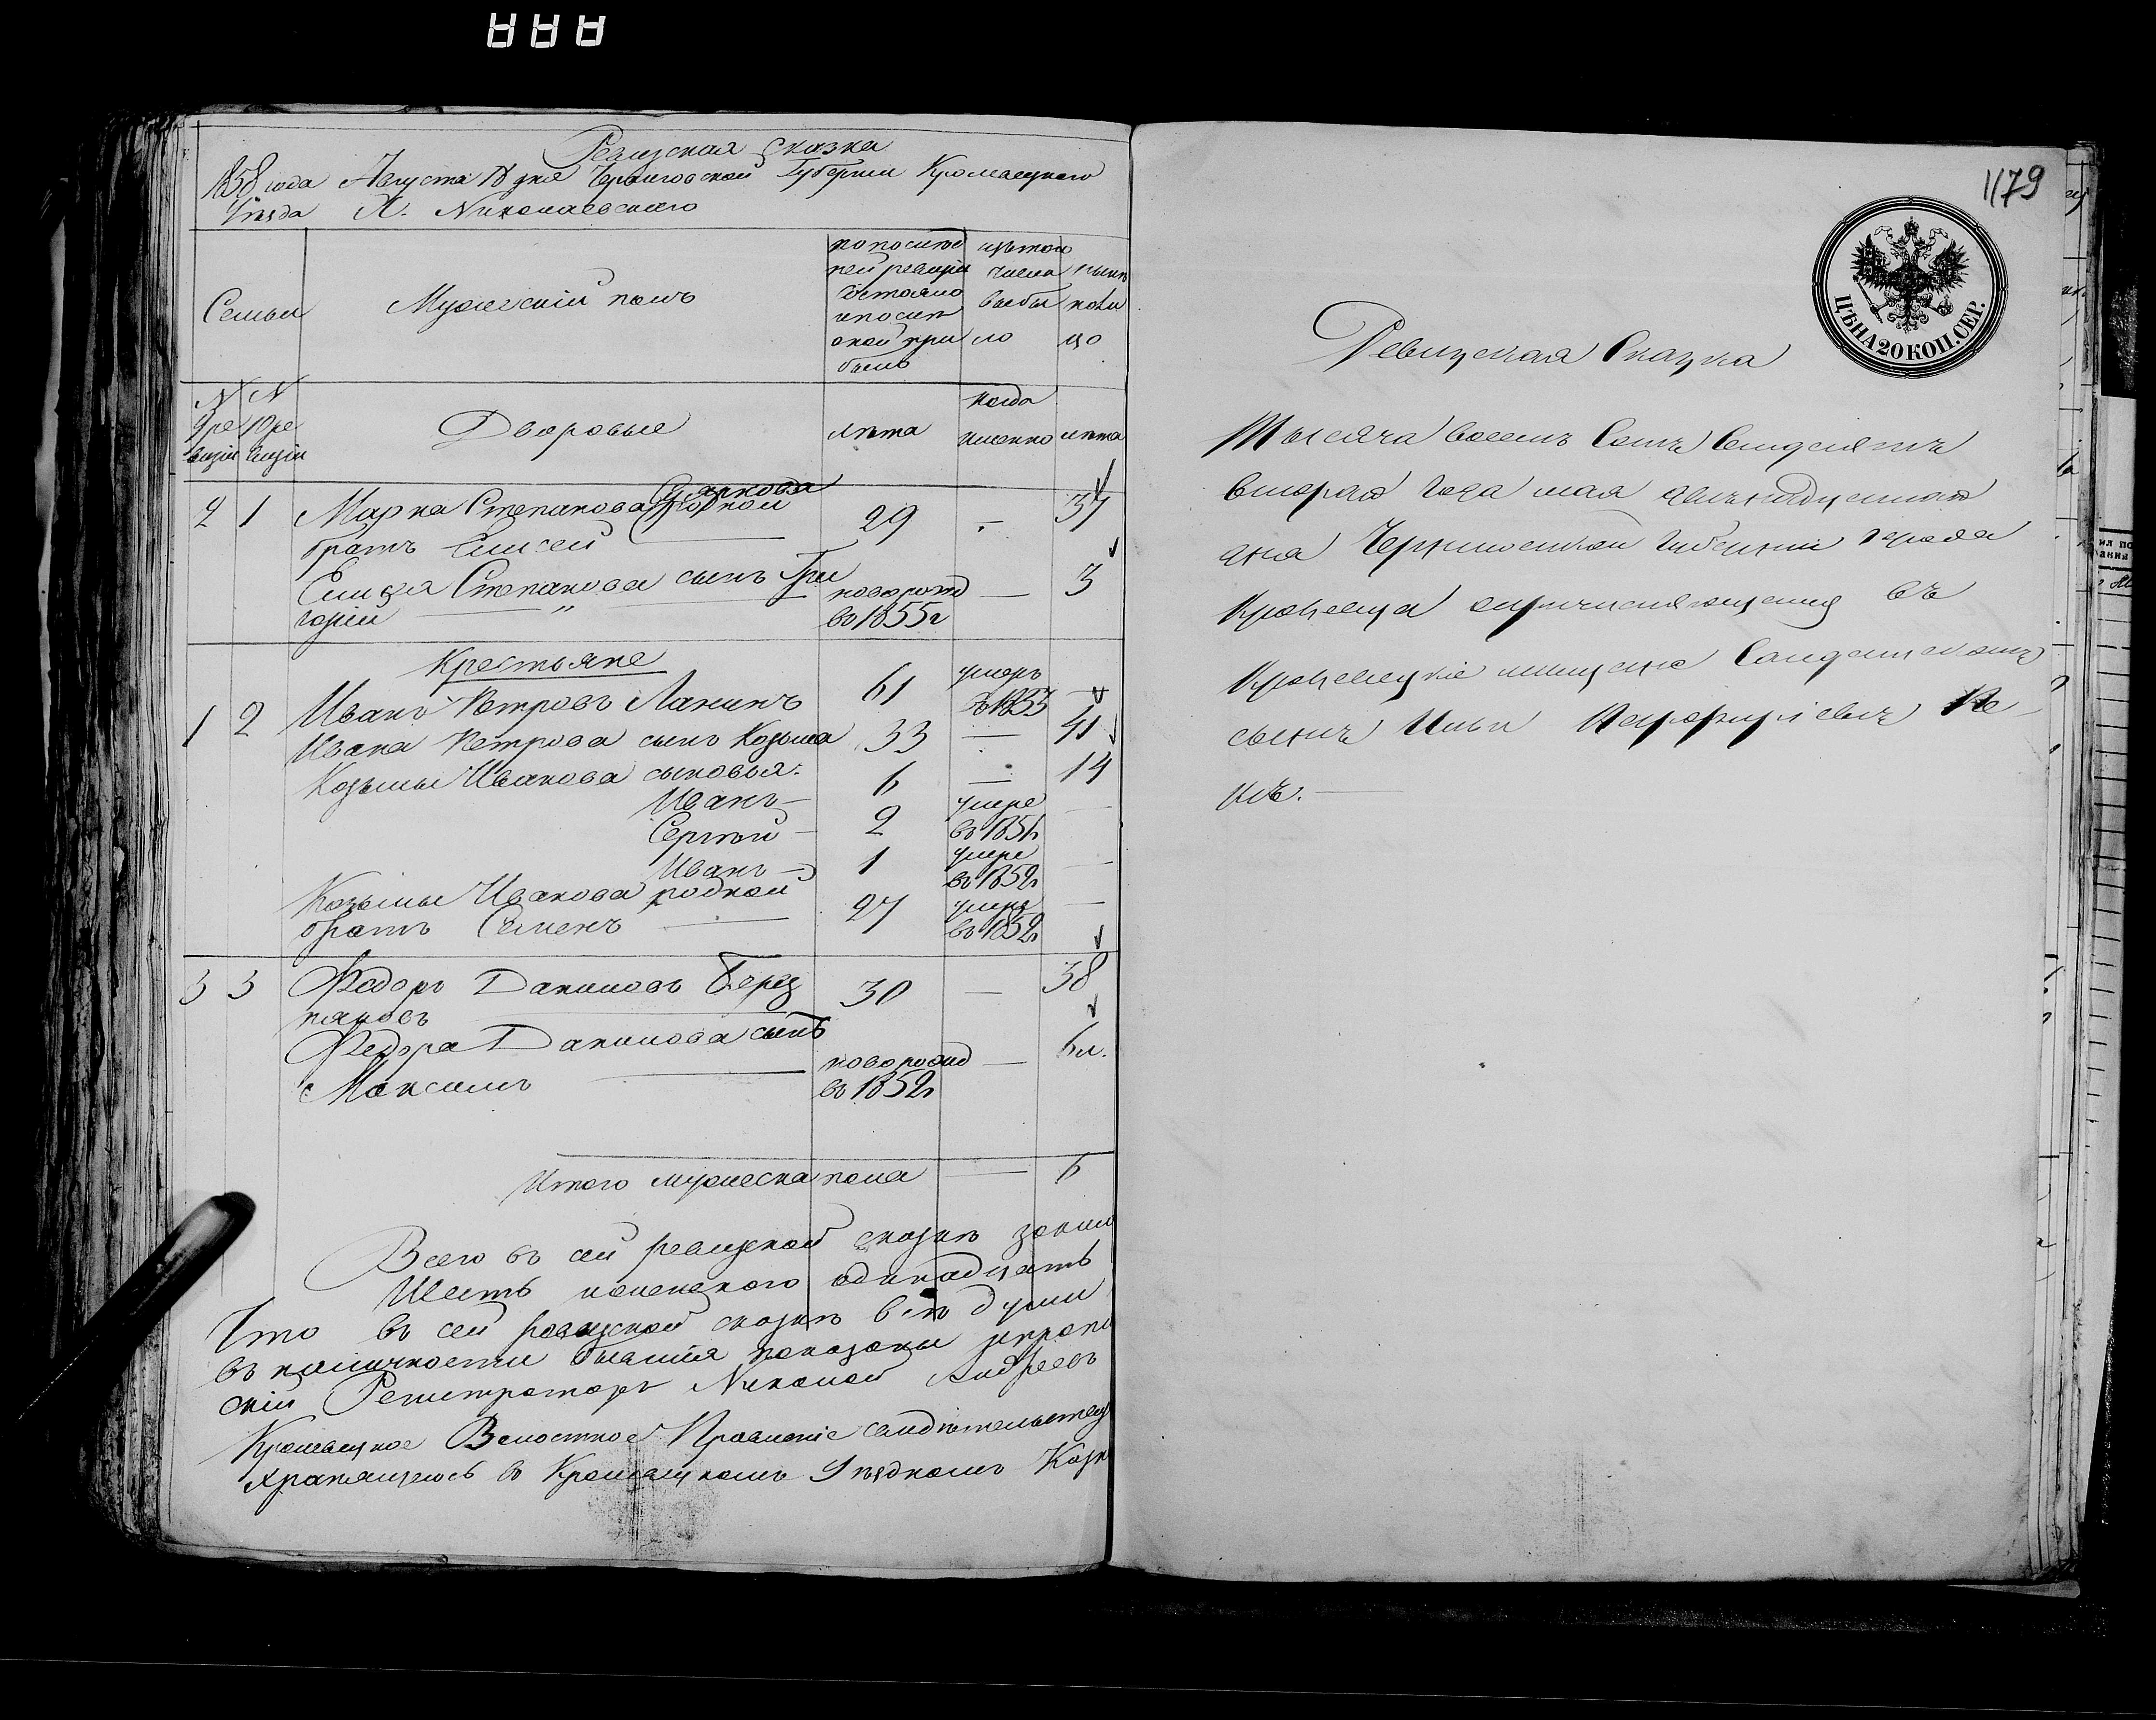 Ревизская Сказка
1858 года Августа 18 дня Черниговской Губернии Кролевецкого
Уезда Х. Николаевского
Семьи
Мужескій полъ
по послѣд
ней ревизіи
состояло
и послѣ
оной при
было
изъ того
числа
выбы
ло
нынѣ
нали
цо
N N
9 ре 10 ре
визіи визіи
Дворовые
лѣта
когда
именно
лѣта
2 1 Марка Степанова родной 29 — 37
братъ Елисей
Елисея Степанова сынъ Гри новорожд — 3
горій в 1855г
Крестьяне
1 2 Иванъ Петровъ Ланинъ 61 умеръ в 1853 —
Ивана Петрова сынъ Козьма 33 — 41
Козьмы Иванова сыновья: 6 — 14
Иванъ — умере
Сергѣй — 2 во 1851г
Иванъ — 1 умере во 1852г —
Козьмы Иванова родной 27 умере —
братъ Семенъ во 1852г
3 3 Федоръ Даниловъ Берез 30 — 38
няковъ
Федора Данилова сынъ
Максимъ новорожд во 1852г — 6л.
Итого мужеска пола — 6
Всего въ сей ревизской сказкѣ
Шесть женского одинадцать
Что въ сей ревизской сказкѣ всѣ души
въ наличности бывшія показаны
скій Регистраторъ Николай Андреевъ
Кролевецкое Волостное Правленіе свидѣтельствуе
хранящеюсь в Кролевецкомъ Уездномъ Казн
1179
ЦѢНА 20 КОП. СЕР.
Ревизская Сказка
Тысяча восемь Сотъ Семдесятъ
втораго года мая двенадцатаго
дня Черниговской Губерніи города
Кролевца о причисляющемся въ
Кролевецкіе мещане
сынъ Ильи Порфиріевич